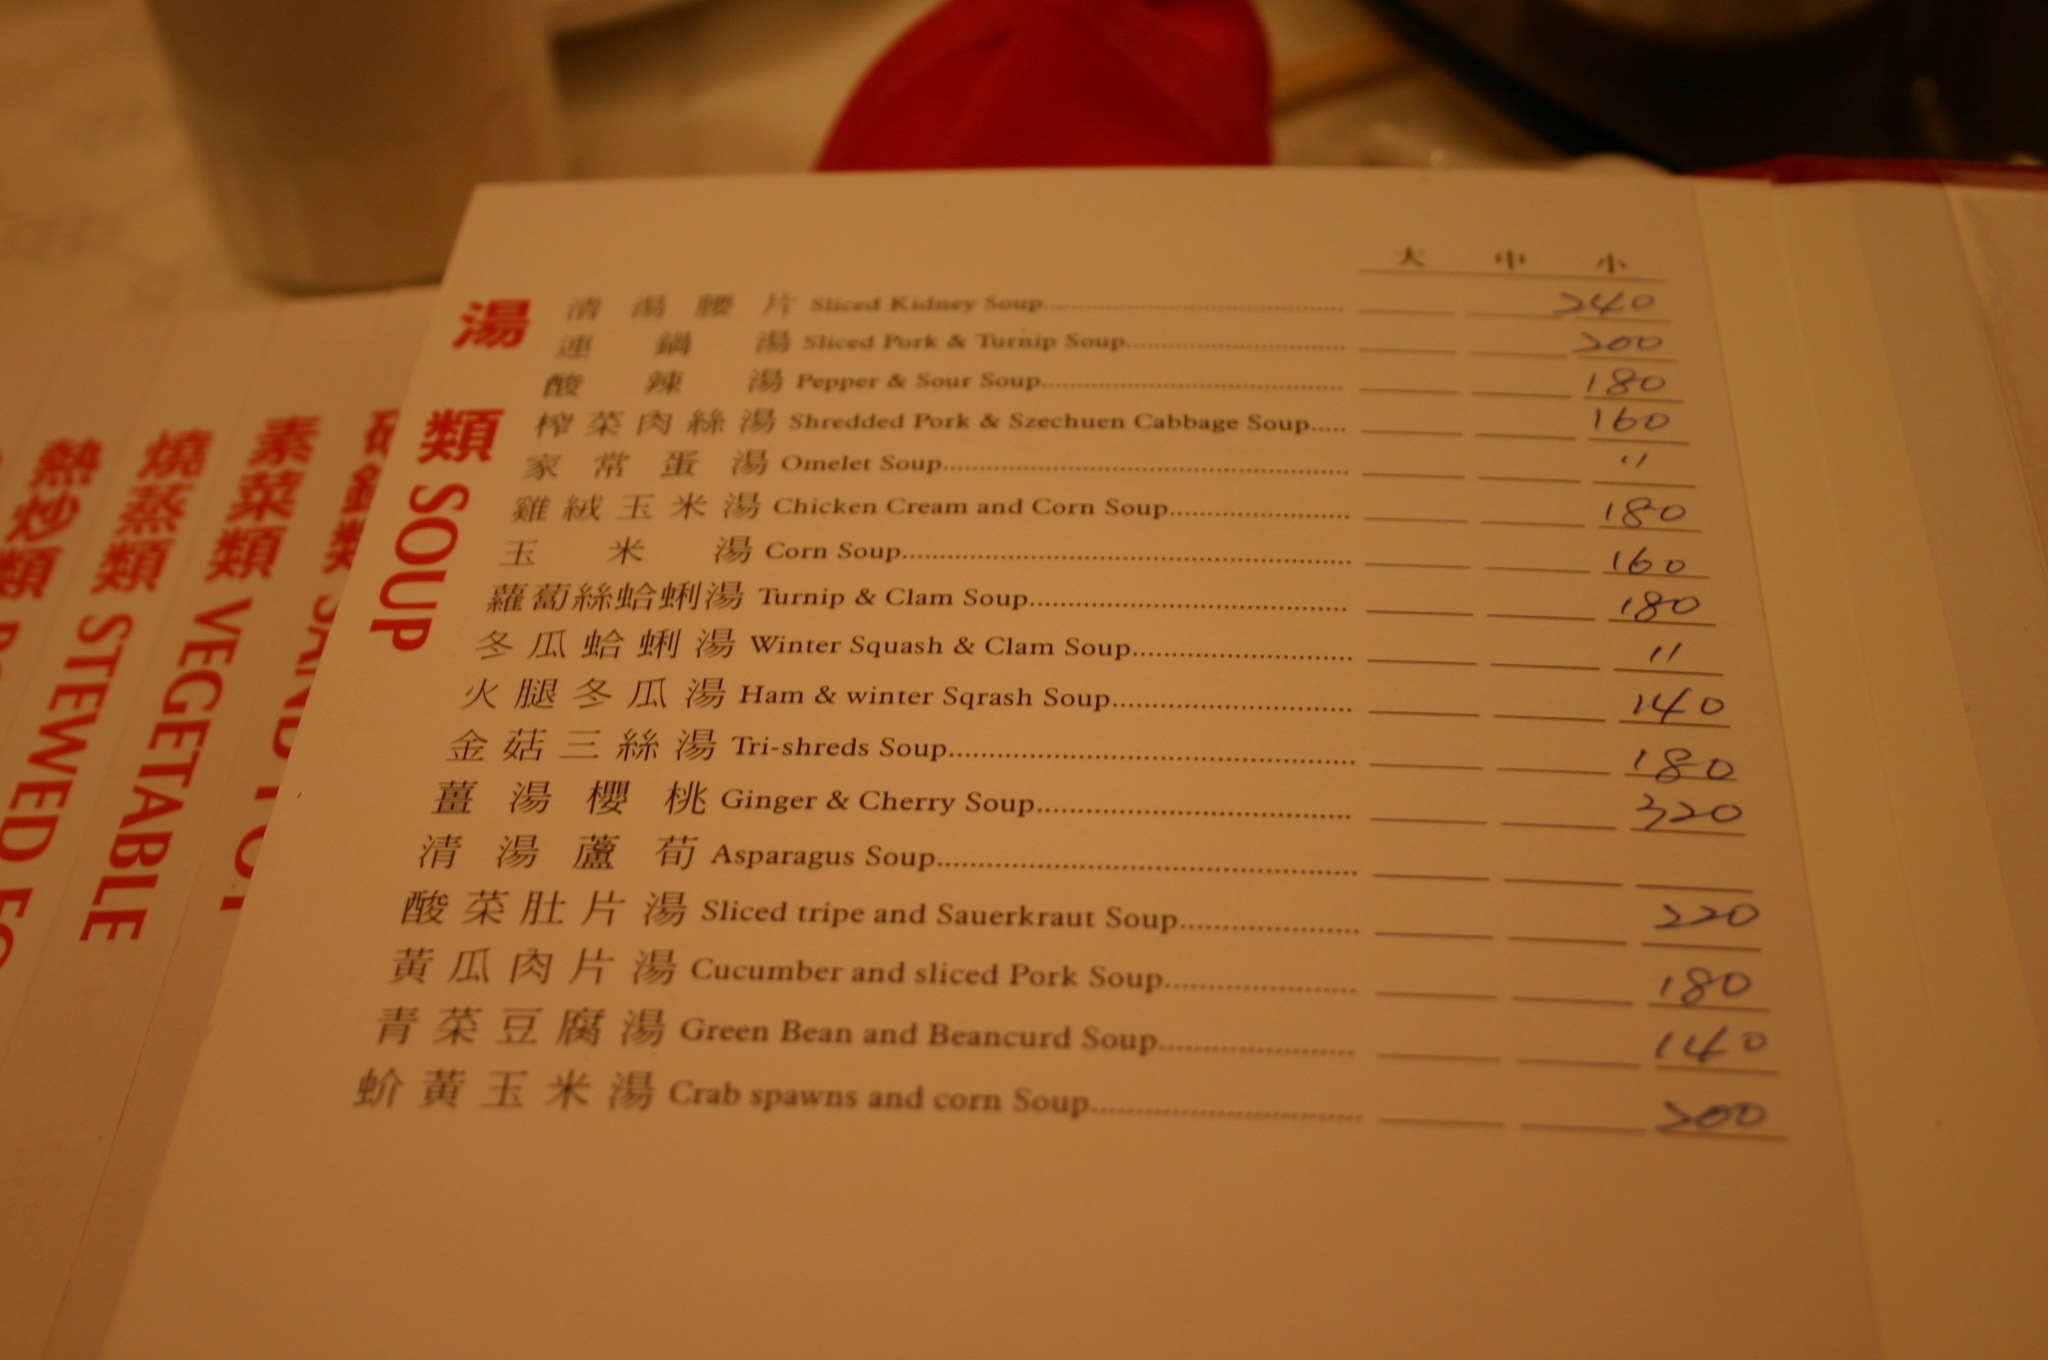 大 中 小
湯類 SOUP
清湯腰片 Sliced Kidney Soup 240
連鍋湯 Sliced Pork & Turnip Soup 200
酸辣湯 Pepper & Sour Soup 180
榨菜肉絲湯 Shredded Pork & Szechuen Cabbage Soup 160
家常蛋湯 Omelet Soup 〃
雞絨玉米湯 Chicken Cream and Corn Soup 180
玉米湯 Corn Soup 160
蘿蔔絲蛤蜊湯 Turnip & Clam Soup 180
冬瓜蛤蜊湯 Winter Squash & Clam Soup 〃
火腿冬瓜湯 Ham & winter Sqrash Soup 140
金菇三絲湯 Tri-shreds Soup 180
薑湯櫻桃 Ginger & Cherry Soup 320
清湯蘆荀 Asparagus Soup
酸菜肚片湯 Sliced tripe and Sauerkraut Soup 220
黃瓜肉片湯 Cucumber and sliced Pork Soup 180
青菜豆腐湯 Green Bean and Beancurd Soup 140
蚧黃玉米湯 Crab spawns and corn Soup 200
素菜類 VEGETABLE
燒蒸類 STEWED
熱炒類